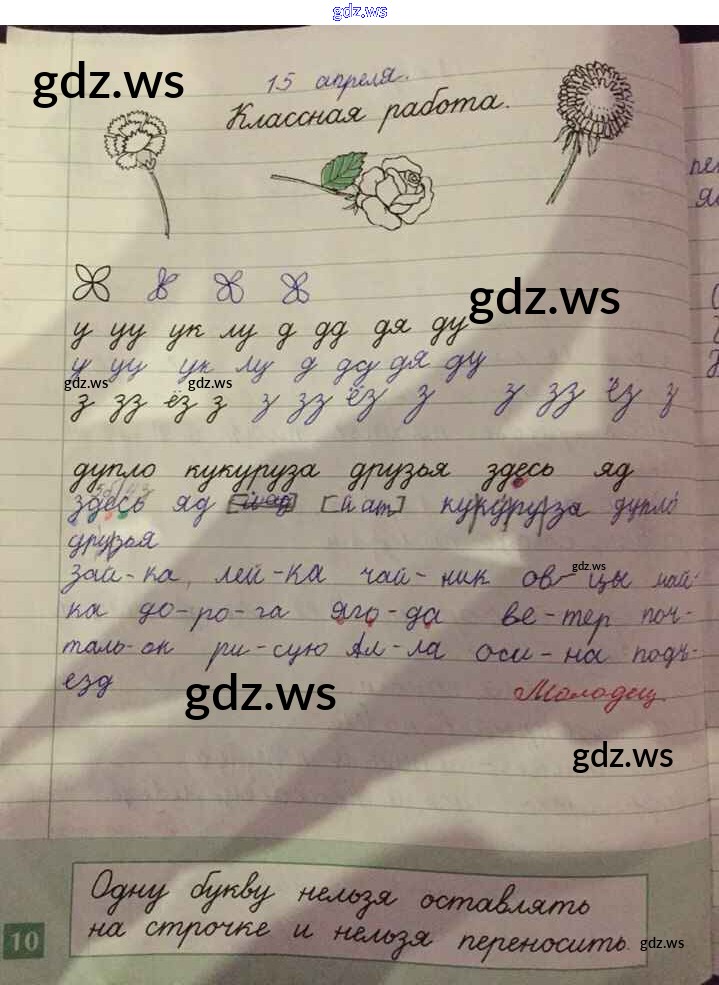 gdz.ws
15 апреля.
gdz.ws
Классная работа.
gdz.ws
у уу ук лу д дд дя ду
у уу ук лу д дд дя ду
gdz.ws gdz.ws
з зз ёз з з зз ёз з з зз ёз з
дупло кукуруза друзья здесь яд
здесь яд [йат] кукуруза дупло
друзья
gdz.ws
зай-ка, лей-ка чай-ник ов-цы май-
ка до-ро-га яго-да ве-тер поч-
таль-он ри-сую Ал-ла оси-на подъ-
езд Молодец
gdz.ws
gdz.ws
Одну букву нельзя оставлять
на строчке и нельзя переносить. gdz.ws
10